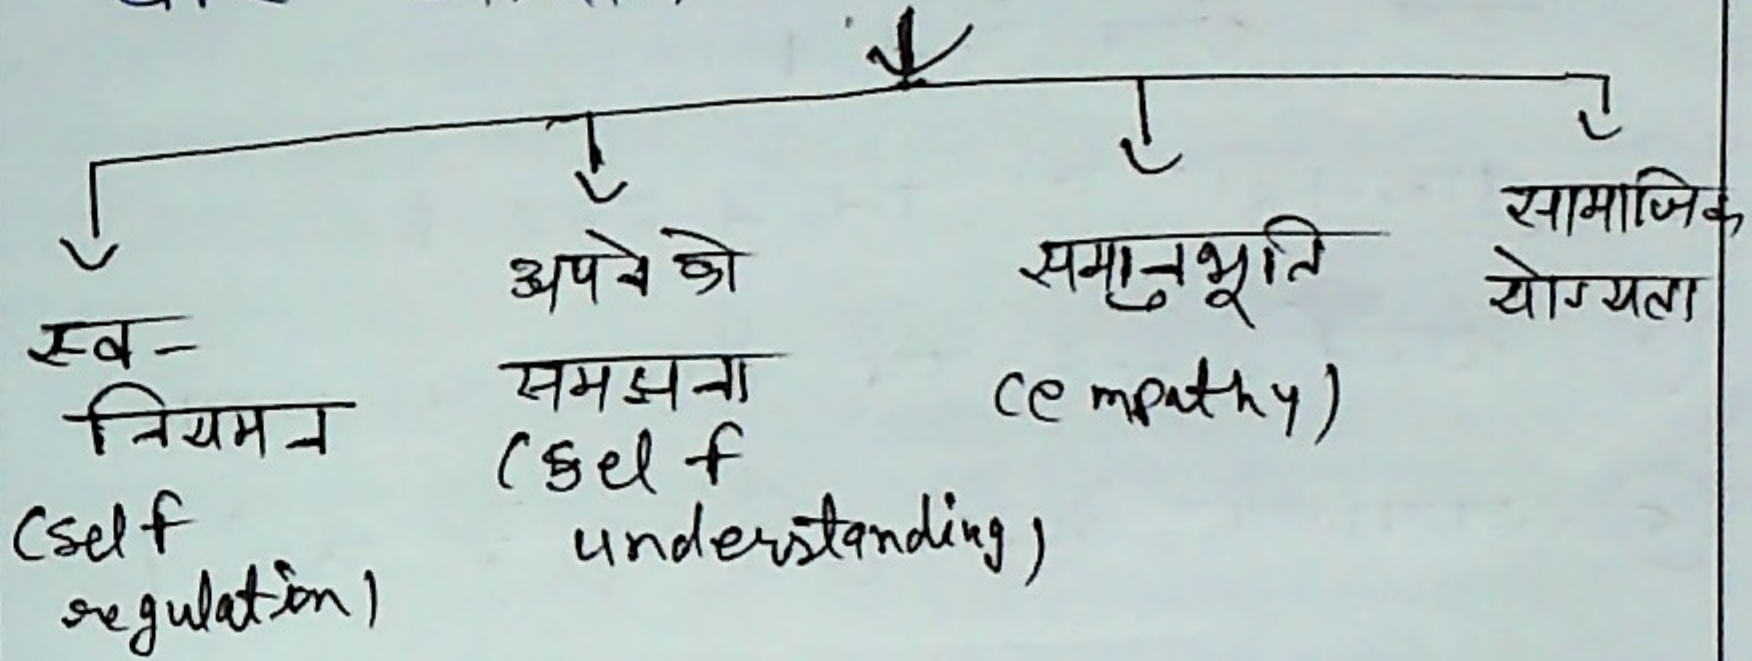 स्व-
नियमन
(self
regulation)
अपने को
समझना
(self
understanding)
समानुभूति
(empathy)
सामाजिक
योग्यता